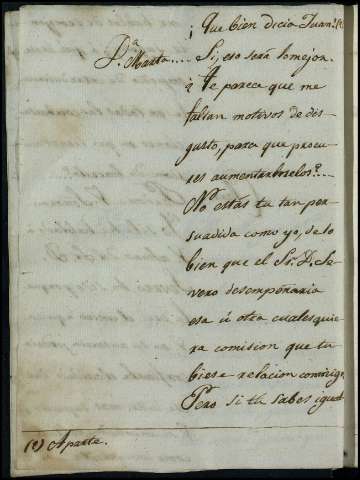 ¡Que bien dicia Juan! (1)
D.ª Marta.... Si, eso será lo mejor.
¿Te parece que me
faltan motivos de dis-
gusto, para que procu-
res aumentarmelos?...
No estás tu tan per-
suadida como yo, de lo
bien que el Sr. D. Se-
vero desempeñaria
esa ú otra cualesquie-
ra comision que tu-
biese relacion conmigo,
Pero si tu sabes igual-
(1) Aparte.